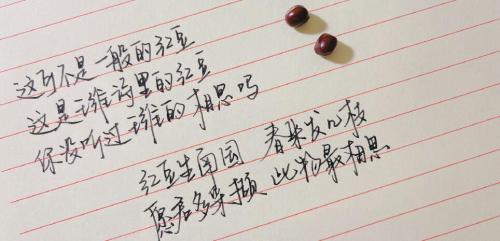 这可不是一般的红豆
这是王维诗里的红豆
你没听过王维的相思吗
红豆生南国 春来发几枝
愿君多采撷 此物最相思